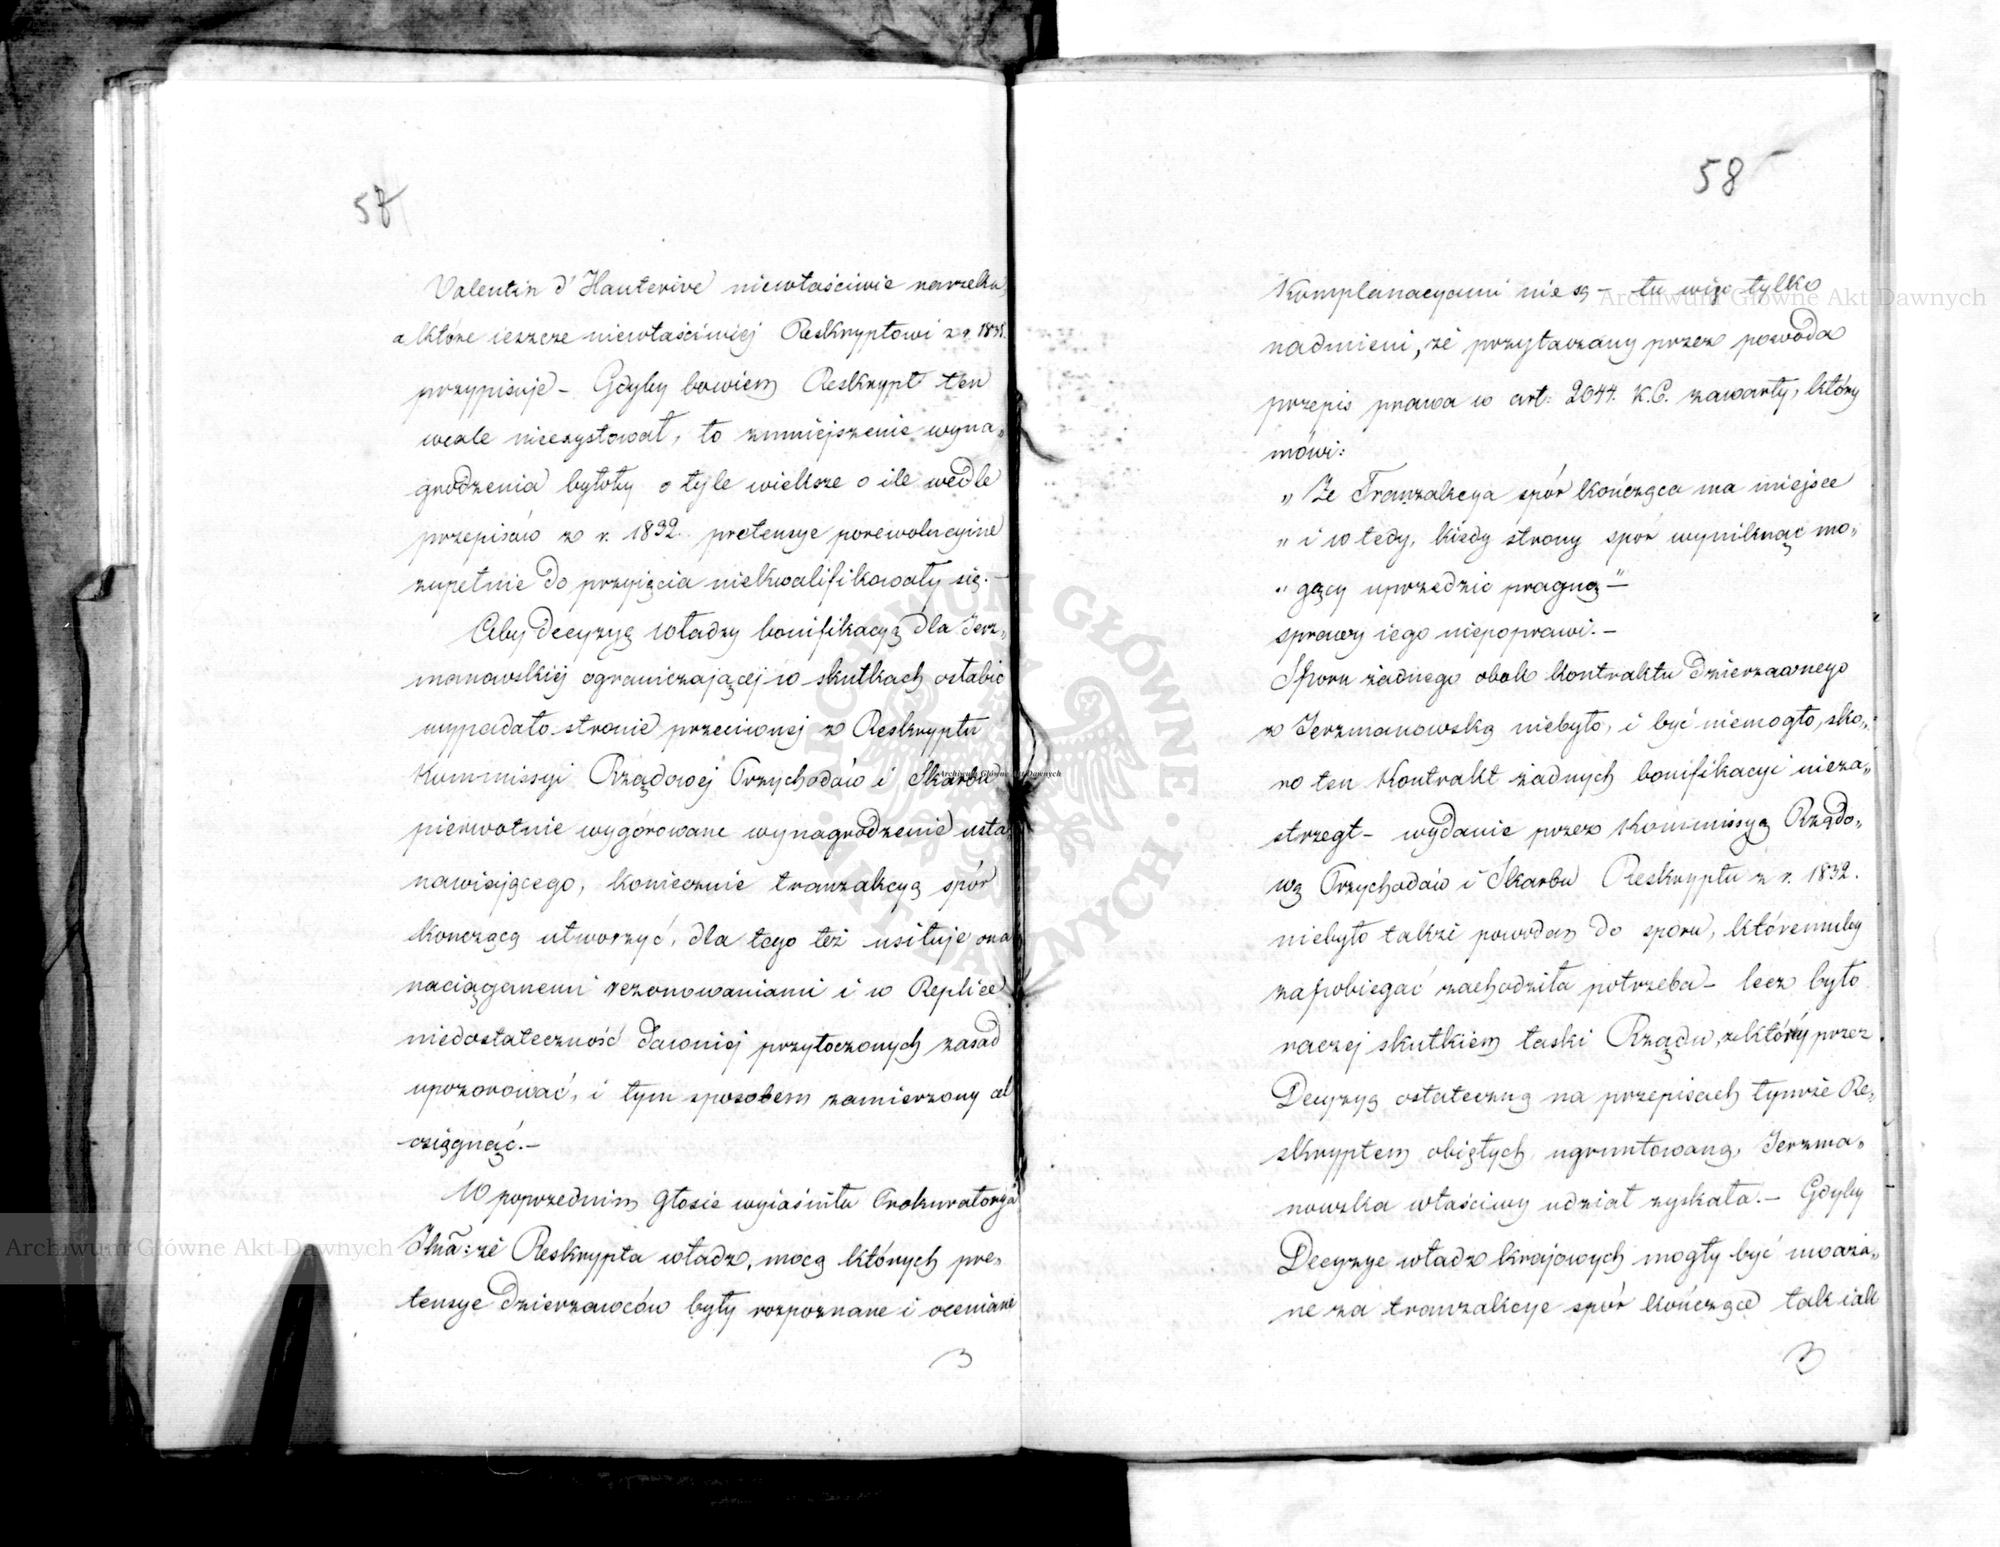 57
Valentin d'Hauterive niewłaściwie narzeka,
a które ieszcze niewłaściwiej Reskryptowi z r. 1832.
przypisuje – Gdyby bowiem Reskrypt ten
wcale nieexystował, to zmniejszenie wyna„
grodzenia byłoby o tyle większe o ile wedle
przepisów z r. 1832. pretensye porewolucyine
zupełnie do przyięcia niekwalifikowały się. –
Aby decyzyą władzy bonifikacyą dla Jerz„
manowskiej ograniczającej w skutkach osłabić
wypadało stronie przeciwnej z Reskryptu
Kommissyi Rządowej Przychodów i Skarbu
pierwotnie wygórowane wynagrodzenie usta„
nawiającego, koniecznie tranzakcyą spór
kończącą utworzyć, dla tego też usiłuje ona
naciąganemi rezonowaniami i w Replice
niedostateczność dawniej przytoczonych zasad
upozorować, i tym sposobem zamierzony cel
osiągnąć. –
W poprzednim głosie wyiaśniła Prokuratorya
Jlna: że Reskrypta władz, mocą których pre„
tensye dzierzawców były rozpoznane i oceniane
58
Komplanacyami nie są – tu więc tylko
nadmieni, że przytaczany przez powoda
przepis prawa w art: 2044. K.C. zawarty, który
mówi:
„ Że Tranzakcya spór kończąca ma miejsce
„ i wtedy, kiedy strony spór wyniknąć mo„
„ gący uprzedzić pragną" –
sprawy iego niepoprawi. –
Sporu żadnego obok kontraktu dzierzawnego
z Jerzmanowską niebyło, i być niemogło, sko„
ro ten Kontrakt żadnych bonifikacyi nieza„
strzegł – wydanie przez Kommissyą Rządo„
wą Przychodów i Skarbu Reskryptu z r. 1832.
niebyło także powodem do sporu, któremuby
zapobiegać zachodziła potrzeba – lecz było
raczej skutkiem łaski Rządu, z który przez
Decyzyą ostateczną na przepisach tymże Re„
skryptem obiętych ugruntowaną, Jerzma„
nowska właściwy udział zyskała. – Gdyby
Decyzye władz krajowych mogły być uważa„
ne za tranzakcye spór kończące tak iak
Archiwum Główne Akt Dawnych
Archiwum Główne Akt Dawnych
Archiwum Główne Akt Dawnych